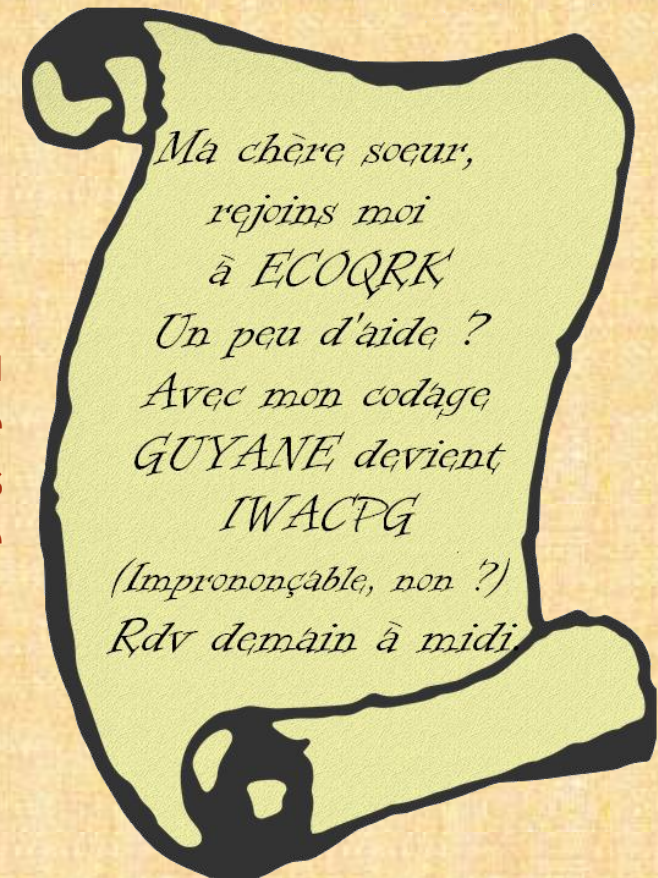 Ma chère soeur,
rejoins moi
à ECOQRK
Un peu d'aide ?
Avec mon codage
GUYANE devient
IWACPG
(Imprononçable, non ?)
Rdv demain à midi.